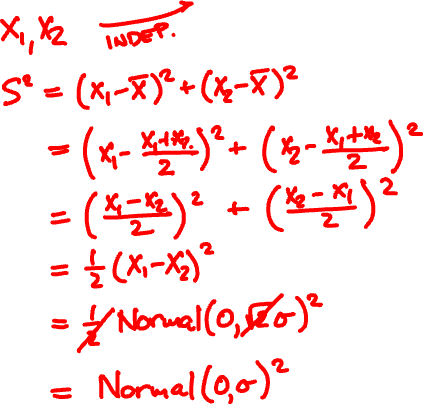 X₁, X₂ INDEP.
S² = (X₁-X̄)² + (X₂-X̄)²
= (X₁ - (X₁+X₂)/2)² + (X₂ - (X₁+X₂)/2)²
= ((X₁-X₂)/2)² + ((X₂-X₁)/2)²
= 1/2 (X₁-X₂)²
= 1/2 Normal(0, √2 σ)²
= Normal(0, σ)²